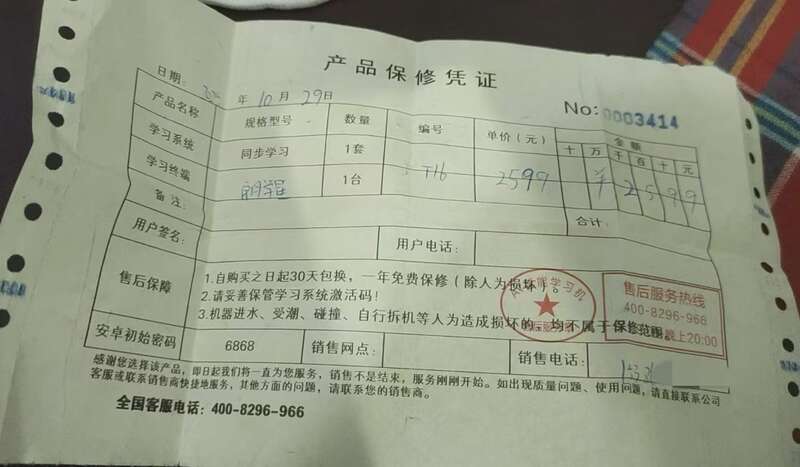 产品保修凭证
日期: 年10月29日
No:0003414
产品名称 规格型号 数量 编号 单价(元) 金额
十 万 千 百 十 元
学习系统 同步学习 1套
学习终端 1台 T16 2599 ¥ 2 5 9 9
备注: 合计:
用户签名: 用户电话:
售后保障
1.自购买之日起30天包换,一年免费保修(除人为损坏)。
2.请妥善保管学习系统激活码!
3.机器进水、受潮、碰撞、自行拆机等人为造成损坏的,均不属于保修范围。
学习机
售后服务热线
400-8296-968
晚上20:00
安卓初始密码 6868 销售网点: 销售电话:
感谢您选择该产品,即日起我们将一直为您服务,销售不是结束,服务刚刚开始。如出现质量问题、使用问题,请直接联系公司
客服或联系销售商快捷地服务,其他方面的问题,请联系您的销售商。
全国客服电话:400-8296-966